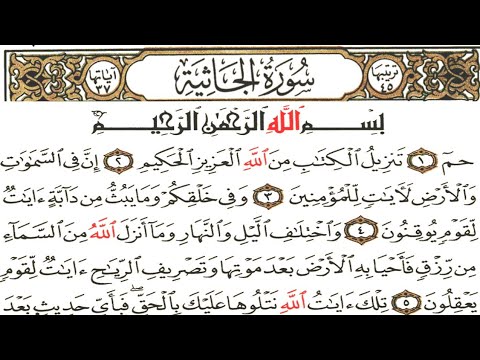 ترتيبها ٤٥ سُورَةُ الجَاثِيَةِ آياتها ٣٧
بِسْمِ ٱللَّهِ ٱلرَّحْمَٰنِ ٱلرَّحِيمِ
حمٓ ١ تَنزِيلُ ٱلْكِتَٰبِ مِنَ ٱللَّهِ ٱلْعَزِيزِ ٱلْحَكِيمِ ٢ إِنَّ فِى ٱلسَّمَٰوَٰتِ
وَٱلْأَرْضِ لَءَايَٰتٍ لِّلْمُؤْمِنِينَ ٣ وَفِى خَلْقِكُمْ وَمَا يَبُثُّ مِن دَآبَّةٍ ءَايَٰتٌ
لِّقَوْمٍ يُوقِنُونَ ٤ وَٱخْتِلَٰفِ ٱلَّيْلِ وَٱلنَّهَارِ وَمَآ أَنزَلَ ٱللَّهُ مِنَ ٱلسَّمَآءِ
مِن رِّزْقٍ فَأَحْيَا بِهِ ٱلْأَرْضَ بَعْدَ مَوْتِهَا وَتَصْرِيفِ ٱلرِّيَٰحِ ءَايَٰتٌ لِّقَوْمٍ
يَعْقِلُونَ ٥ تِلْكَ ءَايَٰتُ ٱللَّهِ نَتْلُوهَا عَلَيْكَ بِٱلْحَقِّ ۖ فَبِأَىِّ حَدِيثٍۭ بَعْدَ